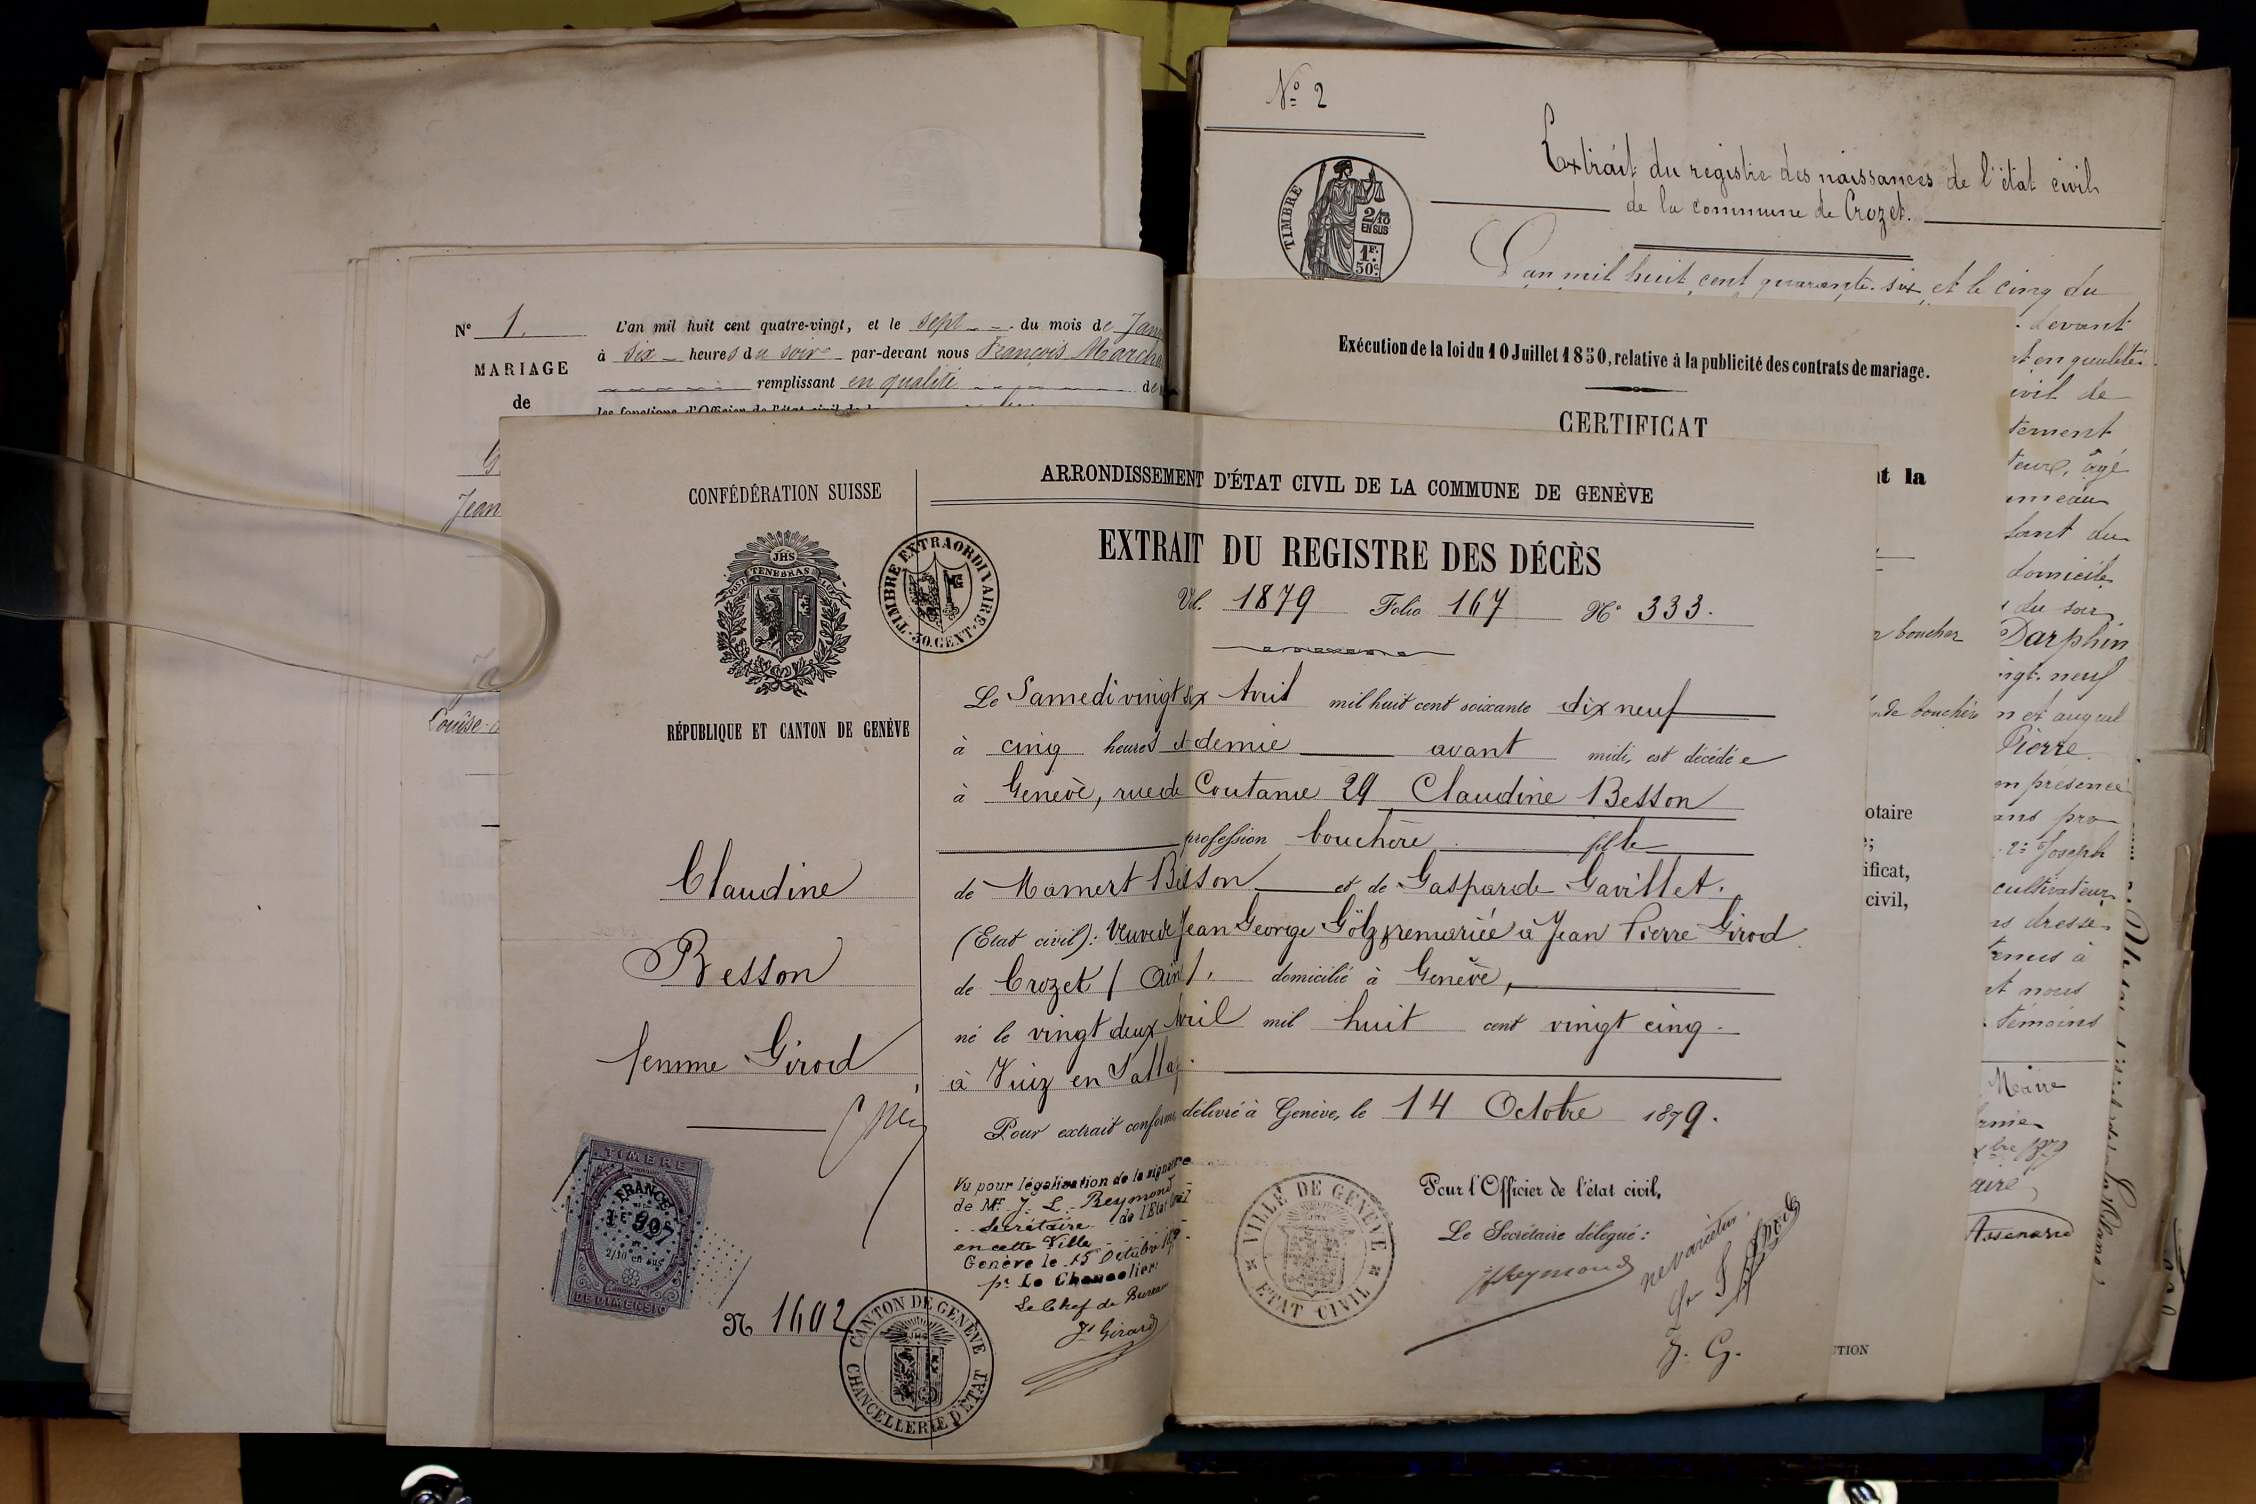 Nº 2
Extrait du registre des naissances de l'état civil
de la commune de Crozet.
TIMBRE
2/10
EN SUS
1F.
50c
L'an mil huit cent quarante-six et le cinq du
devant
et en qualité
civil de
tement
teur, âgé
hameau
sant du
domicile
du soir
Darphin
ingt-neuf
n et auquel
Pierre
en présence
ans pro
2: Joseph
cultivateur
dresse
témoins
nt nous
Maire
Nº 1.
MARIAGE
de
L'an mil huit cent quatre-vingt, et le sept du mois de Janv
à six heures du soir par-devant nous François Marcha
remplissant en qualité de
les fonctions d'Officier de l'état civil de la
Jean
Louise
Exécution de la loi du 10 Juillet 1850, relative à la publicité des contrats de mariage.
CERTIFICAT
t la
boucher
de bouchère
otaire
ificat,
civil,
UTION
CONFÉDÉRATION SUISSE
POST TENEBRAS LUX
JHS
RÉPUBLIQUE ET CANTON DE GENÈVE
TIMBRE EXTRAORDINAIRE
50.CENT.
ARRONDISSEMENT D'ÉTAT CIVIL DE LA COMMUNE DE GENÈVE
EXTRAIT DU REGISTRE DES DÉCÈS
Vol. 1879 Folio 167 Nº 333.
Le Samedi vingt six Avril mil huit cent soixante dix neuf
à cinq heures et demie avant midi, est décédée
à Genève, rue de Coutance 29 Claudine Besson
profession bouchère fille
de Mamert Besson et de Gasparde Gavillet.
(Etat civil): Veuve de Jean George Götz, remariée à Jean Pierre Girod
de Crozet (Ain). domicilié à Genève,
né le vingt deux Avril mil huit cent vingt cinq
à Viuz en Sallaz.
Pour extrait conforme, délivré à Genève, le 14 Octobre 1879.
Claudine
Besson
femme Girod
Vu pour légalisation de la signature
de Mr J. L. Reymond
Secrétaire de l'Etat Civil
en cette Ville
Genève le 15 Octobre 1879
pr Le Chancelier:
Le Chef de Bureau
Js Girard
Pour l'Officier de l'état civil,
Le Secrétaire délégué:
JLReymond
ne varietur
J. G.
VILLE DE GENÈVE
ETAT CIVIL
TIMBRE
FRANCE
2/10 en sus
DE DIMENSIO
N 1602
CANTON DE GENÈVE
CHANCELLERIE D'ÉTAT